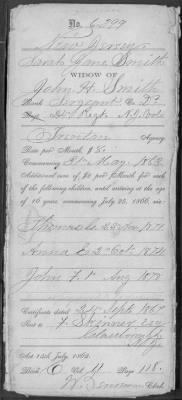 No. 6299
New Jersey
Sarah Jane Smith
WIDOW OF
John H. Smith
Rank Sergeant Co. D
Regt. N.J. Vols
Trenton Agency.
Rate per Month, $8
Commencing May, 1863
Additional sum of $2 per Month for each
of the following children, until arriving at the age of
16 years, commencing July 25, 1866, viz:
Thomas
Anna 2d Oct. 1874
John F. 1st Aug 1878
Certificate dated Sept. 1867
Sent to F. Skinner Esq
N.J.
Act 14th July, 1862.
Book Vol. Page 118.
W. Clerk.